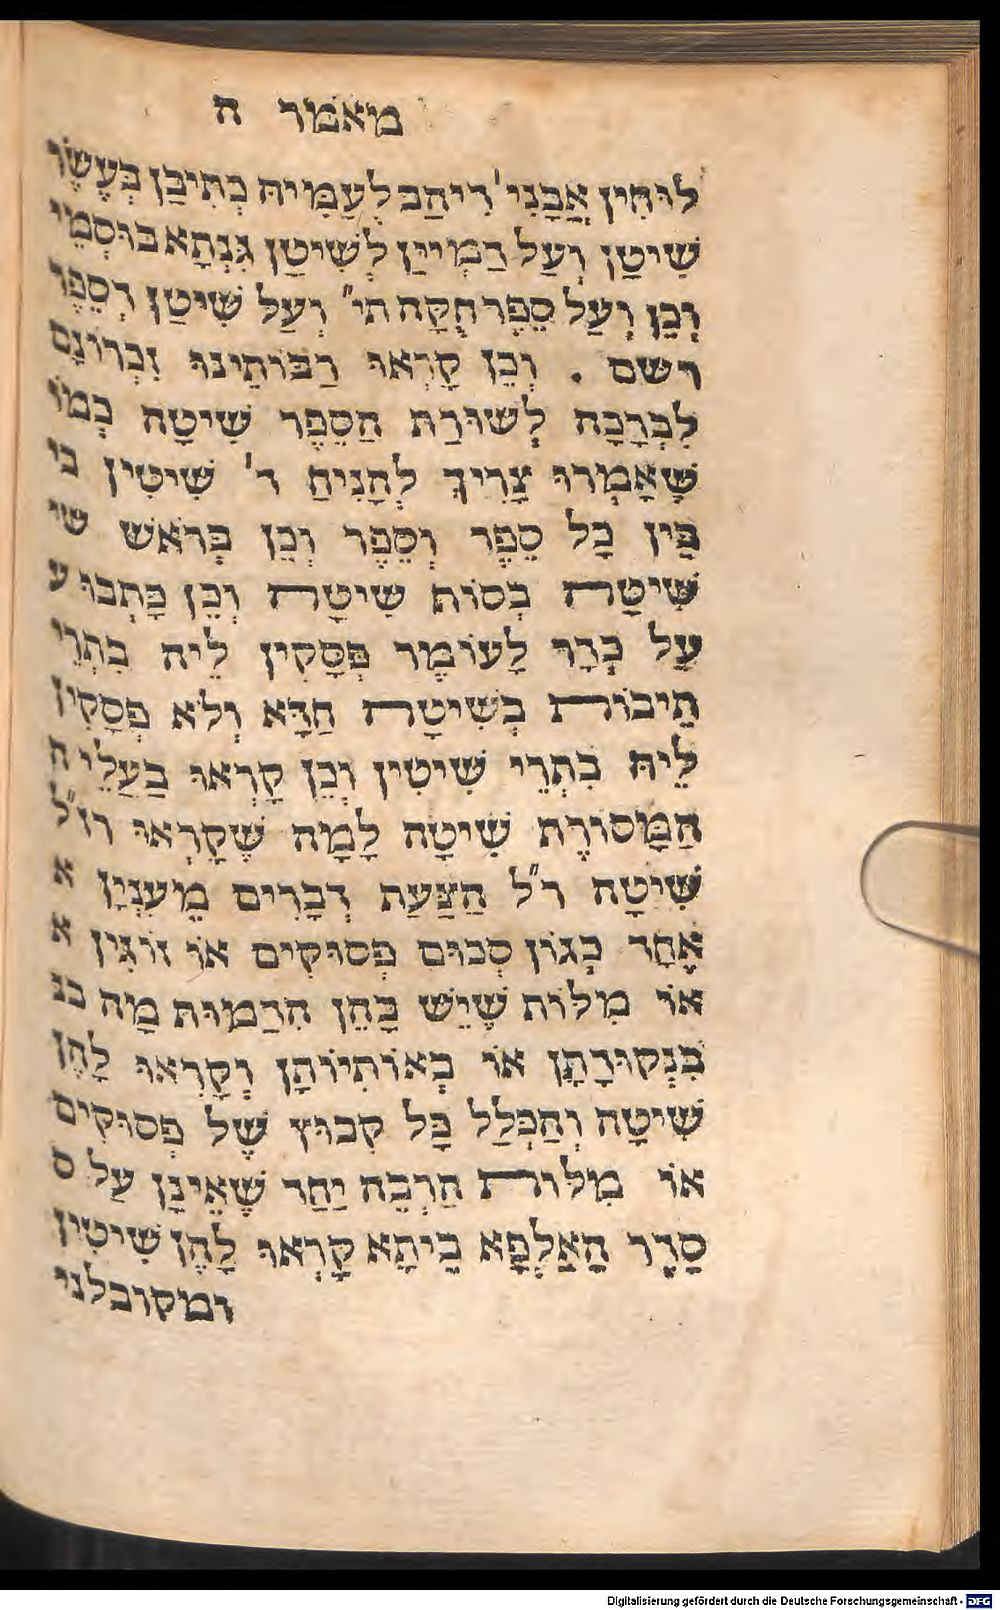 מאמר ה
לוּחִין אֲבָנִי' דִיהַב לְעַמִּיהּ כְּתִיבָן בְּעֲשַׂר
שִׁיטָן וְעַל דַמְיָין לְשִׁיטַן גִּנְּתָא בּוּסְמֵי
וְכֵן וְעַל סֵפֶר חֻקָּה תי" וְעַל שִׁיטַן דְסֵפֶר
רשם . וְכֵן קָרְאוּ רַבּוֹתֵינוּ זִכְרוֹנָם
לִבְרָכָה לְשׁוּרַת הַסֵפֶר שִׁיטָה כְּמוֹ
שֶׁאָמְרוּ צָרִיךְ לְהָנִיחַ ד' שִׁיטִין בי
בֵּין כָּל סֵפֶר וְסֵפֶר וְכֵן בְּרֹאשׁ שי
שִׁיטָה בְּסוֹת שִׁיטָה וְכֵן כָּתְבוּ ע
עַל כְּדָר לָעוֹמֶר פְּסָקִין לֵיהּ בִּתְרֵי
תֵיבוֹת בְּשִׁיטָה חַדָא וְלֹא פְּסָקִין
לֵיהּ בִּתְרֵי שִׁיטִין וְכֵן קָרְאוּ בַעֲלֵי ה
הַמָּסוֹרֶת שִׁיטָה לָמָה שֶׁקָרְאוּ רז"ל
שִׁיטָה ר"ל הַצַּעַת דְבָרִים מֵעִנְיָן א
אֶחָד כְּגוֹן סְכוּם פְּסוּקִים אוֹ זוּגִין א
אוֹ מִלּוֹת שֶׁיֵשׁ בָּהֵן הִדַמוּת מָה בנ
בִּנְקוּדָתָן אוֹ בְּאוֹתִיוֹתָן וְקָרְאוּ לָהֶן
שִׁיטָה וְהַכְּלַל כָּל קִבּוּץ שֶׁל פְּסוּקִים
אוֹ מִלּוֹת הַרְבֵּה יַחַד שֶׁאֵינָן עַל ס
סֵדֶר הָאַלְפָא בֵיתָא קָרְאוּ לָהֶן שִׁיטִין
ומקובלני
Digitalisierung gefördert durch die Deutsche Forschungsgemeinschaft - DFG